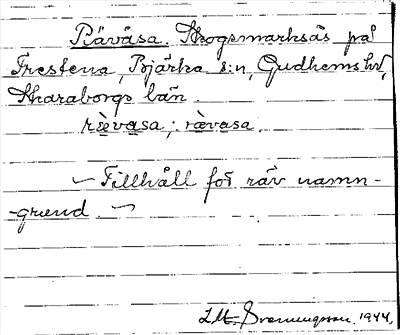 Rävåsa. Skogsmarksås på
Frestena, Bjärka s:n, Gudhems hd,
Skaraborgs län.
rèvasa, : rævasa.
~ Tillhåll för räv namn-
-grund ~
1944.